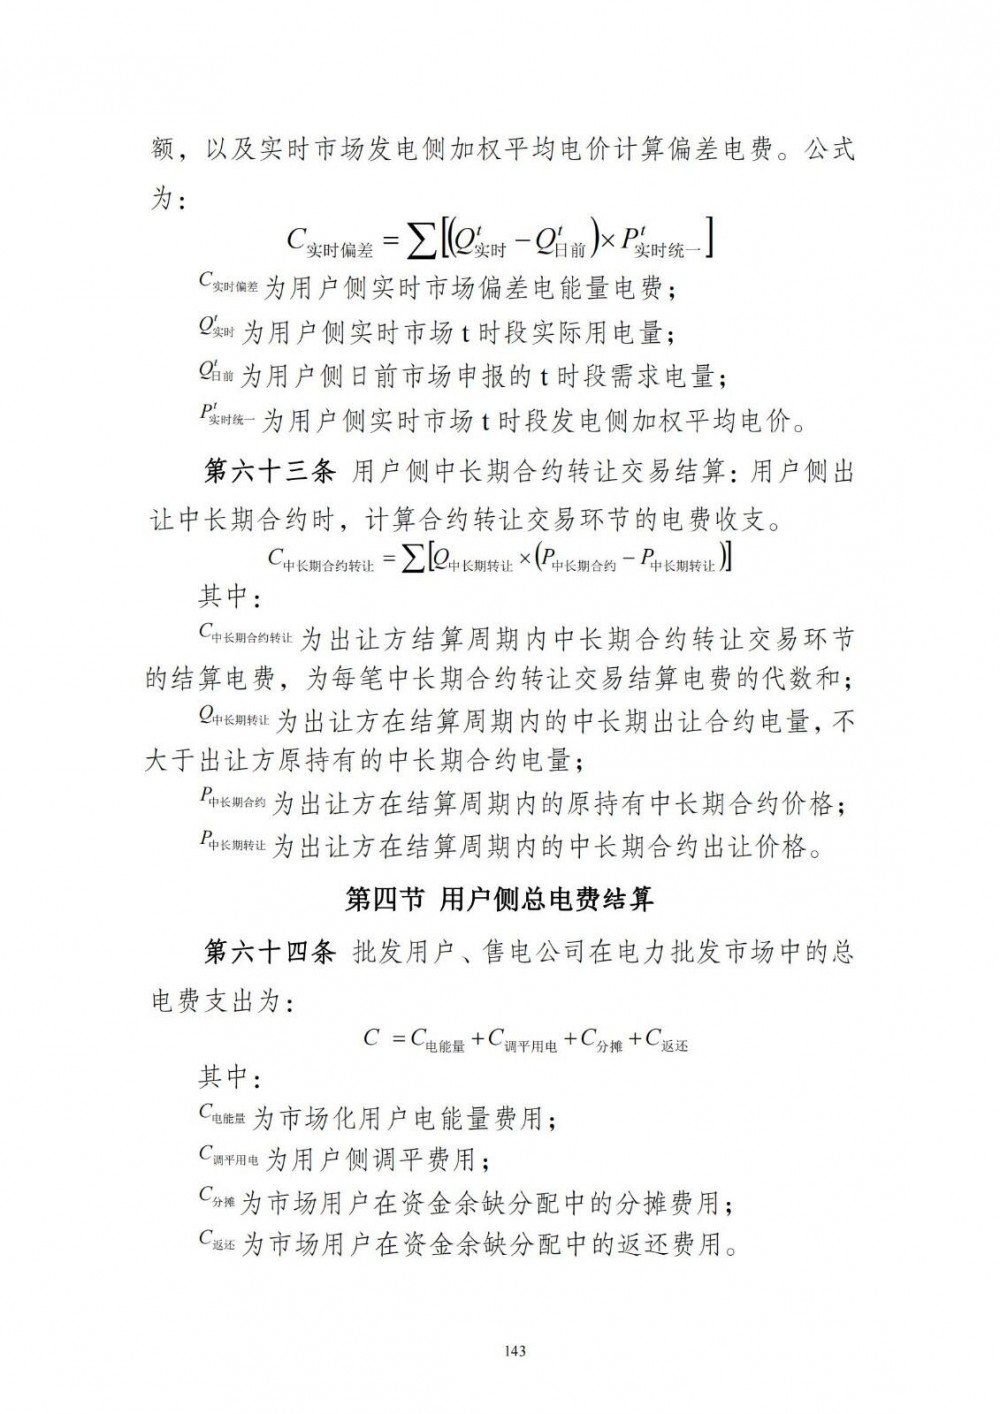 额，以及实时市场发电侧加权平均电价计算偏差电费。公式
为：
C实时偏差 = ∑[(Q^t实时 − Q^t日前) × P^t实时统一]
C实时偏差 为用户侧实时市场偏差电能量电费；
Q^t实时 为用户侧实时市场 t 时段实际用电量；
Q^t日前 为用户侧日前市场申报的 t 时段需求电量；
P^t实时统一 为用户侧实时市场 t 时段发电侧加权平均电价。
第六十三条 用户侧中长期合约转让交易结算：用户侧出
让中长期合约时，计算合约转让交易环节的电费收支。
C中长期合约转让 = ∑[Q中长期转让 × (P中长期合约 − P中长期转让)]
其中：
C中长期合约转让 为出让方结算周期内中长期合约转让交易环节
的结算电费，为每笔中长期合约转让交易结算电费的代数和；
Q中长期转让 为出让方在结算周期内的中长期出让合约电量，不
大于出让方原持有的中长期合约电量；
P中长期合约 为出让方在结算周期内的原持有中长期合约价格；
P中长期转让 为出让方在结算周期内的中长期合约出让价格。
第四节 用户侧总电费结算
第六十四条 批发用户、售电公司在电力批发市场中的总
电费支出为：
C = C电能量 + C调平用电 + C分摊 + C返还
其中：
C电能量 为市场化用户电能量费用；
C调平用电 为用户侧调平费用；
C分摊 为市场用户在资金余缺分配中的分摊费用；
C返还 为市场用户在资金余缺分配中的返还费用。
143